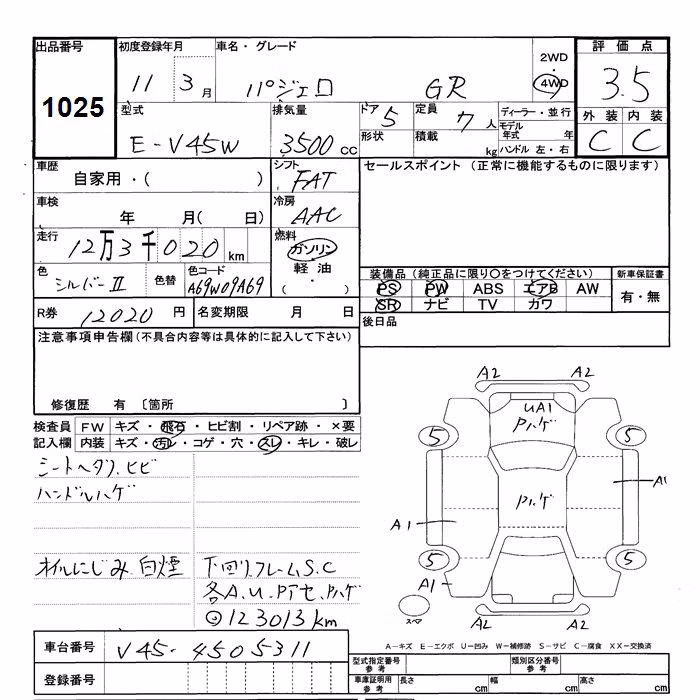 出品番号
1025
初度登録年月
11 3 月
車名・グレード
パジェロ GR
2WD
4WD
評価点
3.5
外装 内装
C C
型式
E-V45W
排気量
3500 cc
ドア 5
形状
定員 7 人
積載 kg
ディーラー・並行
モデル年式 年
ハンドル 左・右
車歴
自家用・( )
シフト
FAT
セールスポイント (正常に機能するものに限ります)
車検
年 月( 日)
冷房
AAC
走行
12万3千020 km
燃料
ガソリン
軽油
( ・ )
色
シルバーII
色替
色コード
A69W09A69
装備品 (純正品に限り○をつけてください)
PS PW ABS エアB AW
SR ナビ TV カワ
新車保証書
有・無
R券 12020 円
名変期限 月 日
後日品
注意事項申告欄(不具合内容等は具体的に記入して下さい)
修復歴 有 〔箇所 〕
検査員記入欄
FW キズ・飛石・ヒビ割・リペア跡・×要
内装 キズ・汚レ・コゲ・穴・スレ・キレ・破レ
シートヘタリ、ヒビ
ハンドルハゲ
オイルにじみ、白煙
下回リ、フレームS.C
各A.U.Pアセ、Pハゲ
◎123013km
A2 A2
UA1
Pハゲ
5 5
Pハゲ
A1
A1
5 5
A1
スペア
A2 A2
A-キズ E-エクボ U-凹み W-補修跡 S-サビ C-腐食 XX-交換済
車台番号 V45-4505311
登録番号
型式指定番号 参考
類別区分番号 参考
車庫証明用 参考
長さ cm 幅 cm 高さ cm